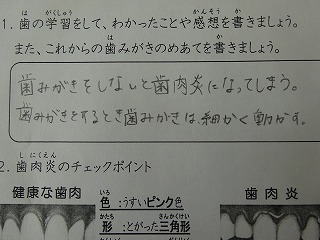 は がくしゅう かんそう か
1. 歯の学習をして、わかったことや感想を書きましょう。
は か
また、これからの歯みがきのめあてを書きましょう。
歯みがきをしないと歯肉炎になってしまう。
歯みがきをするとき歯みがきは、細かく動かす。
しにくえん
2. 歯肉炎のチェックポイント
健康な歯肉
いろ
色:うすいピンク色
かたち さんかくけい
形:とがった三角形
歯肉炎